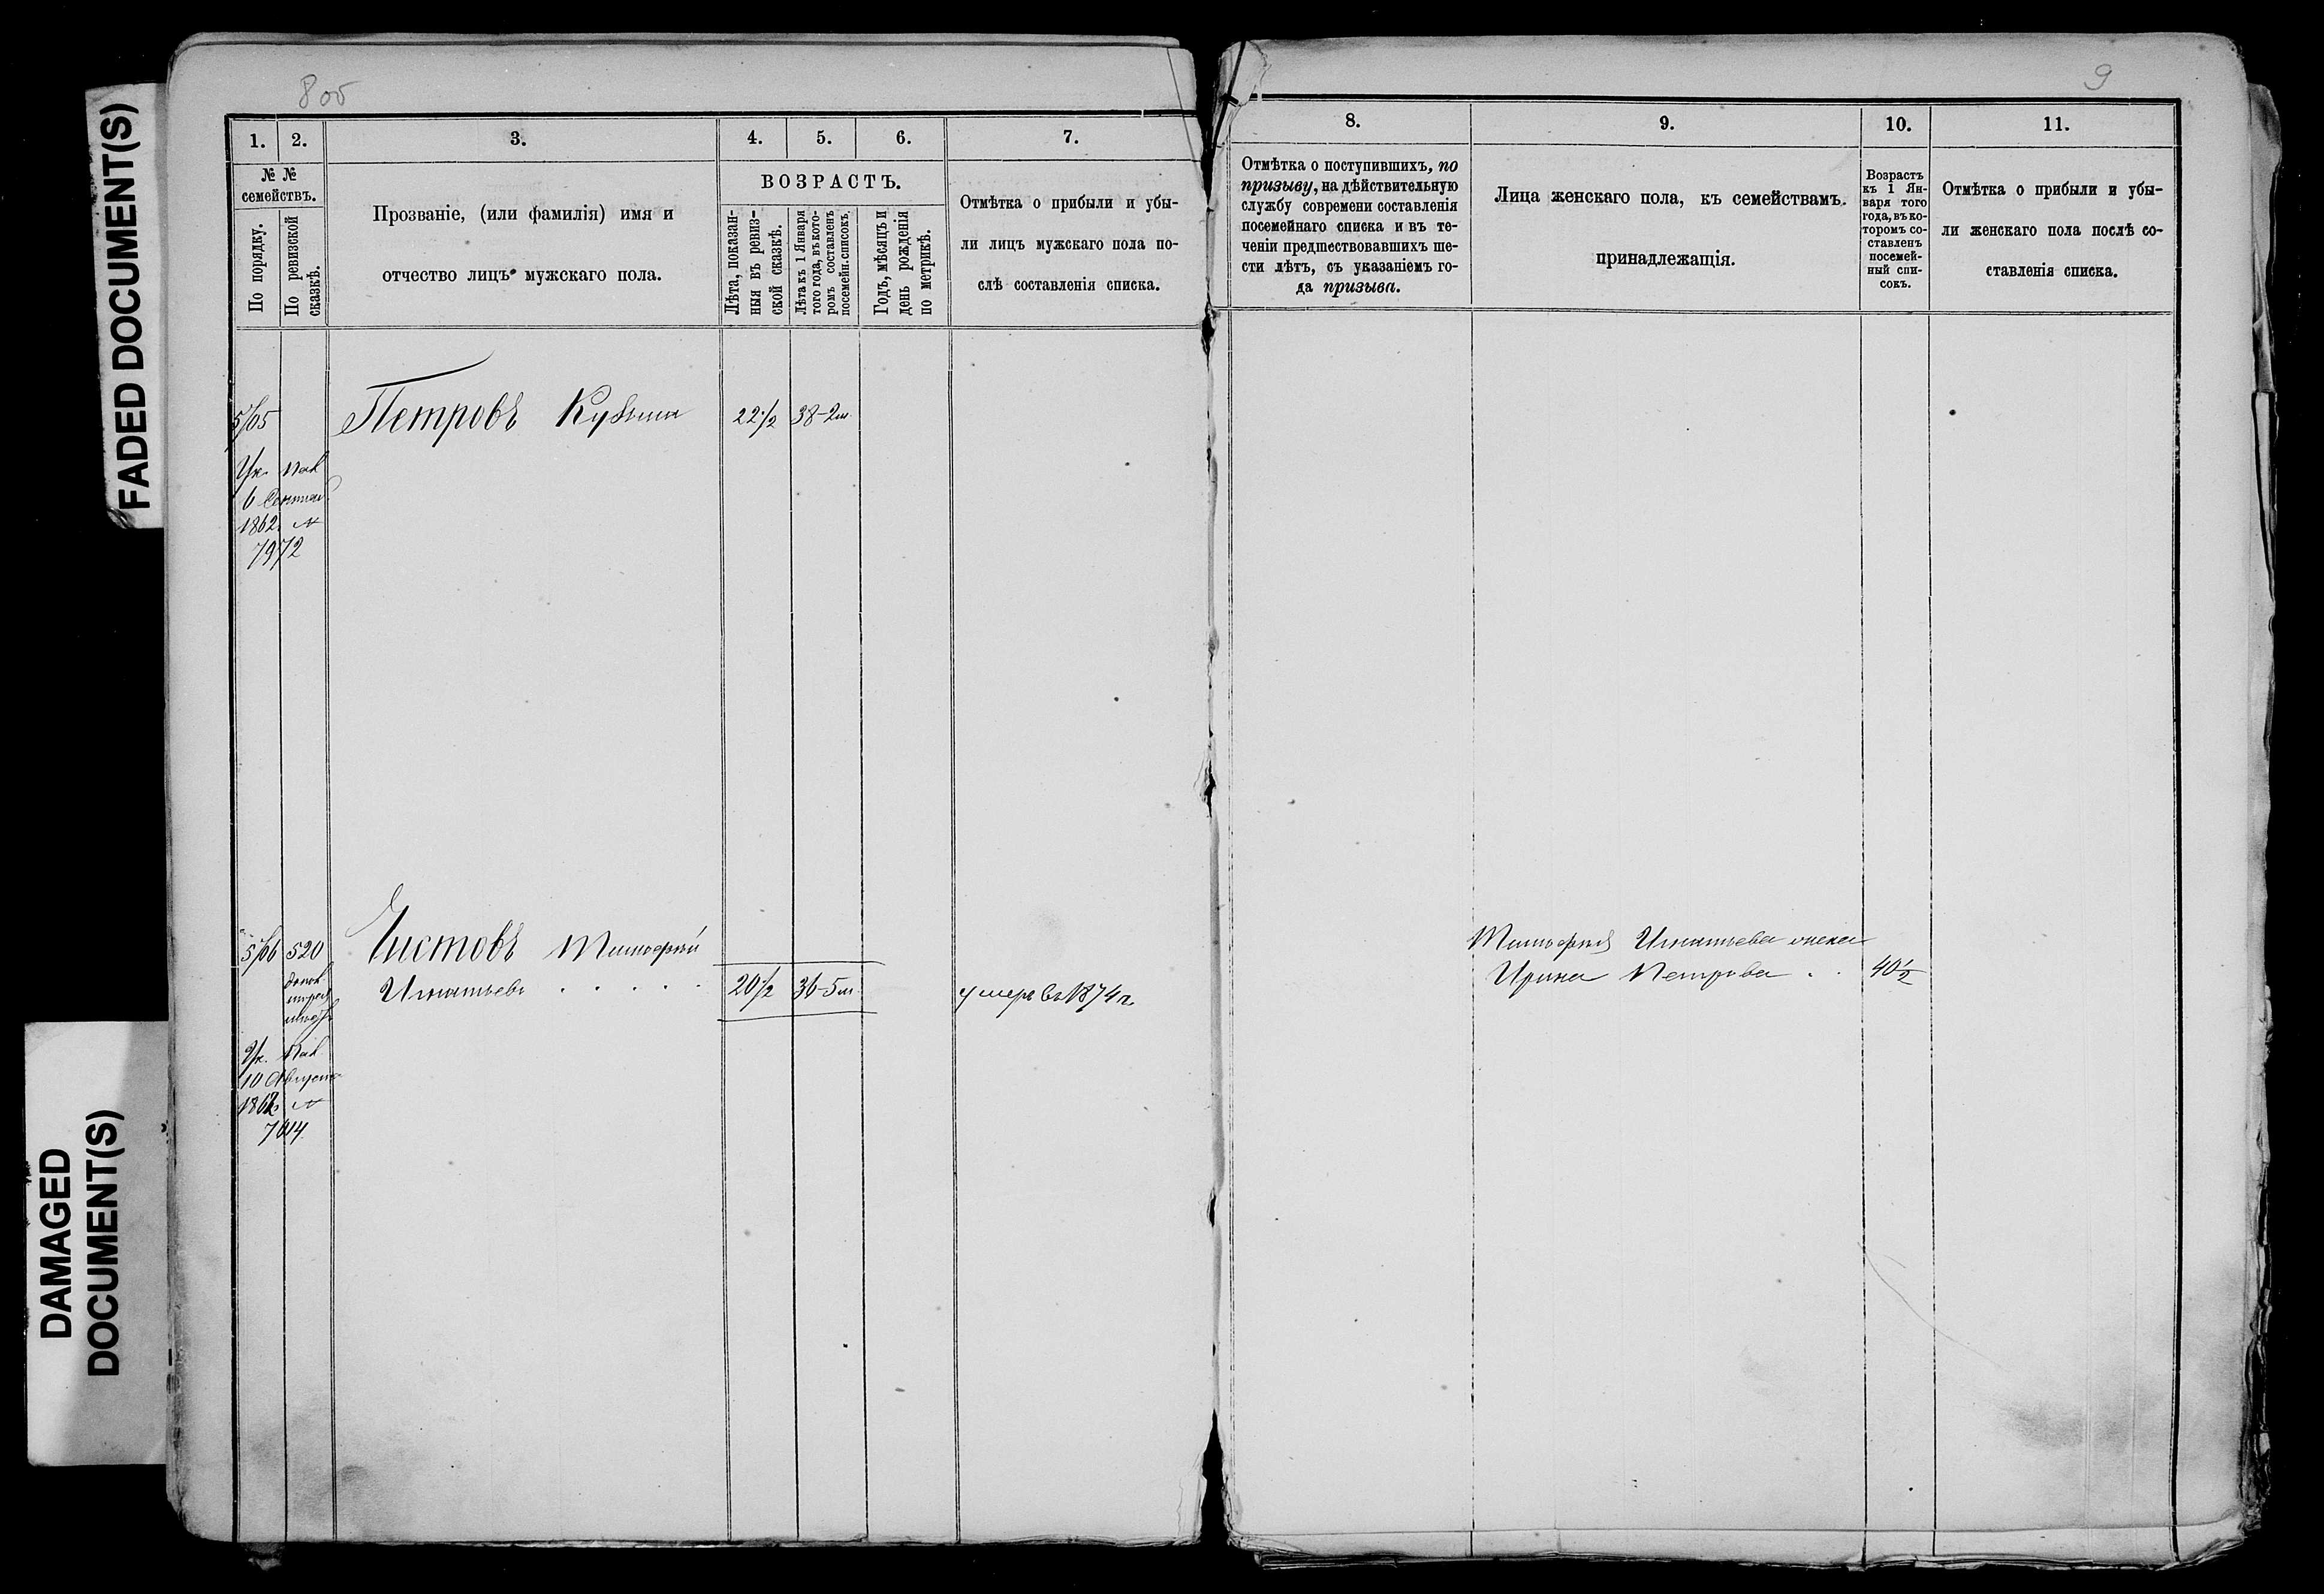 FADED DOCUMENT(S)
DAMAGED
DOCUMENT(S)
8об
1. 2. 3. 4. 5. 6. 7.
№ №
семействъ.
По порядку.
По ревизской
сказкѣ.
Прозваніе, (или фамилія) имя и
отчество лицъ мужскаго пола.
ВОЗРАСТЪ.
Лѣта, показан-
ныя въ ревиз-
ской сказкѣ.
Лѣта къ 1 Января
того года, въ кото-
ромъ составленъ
посемейн. списокъ.
Годъ, мѣсяцъ и
день рожденія
по метрикѣ.
Отмѣтка о прибыли и убы-
ли лицъ мужскаго пола по-
слѣ составленія списка.
5/05 Петровъ 22 1/2 38-2м.
Ук. Пал.
6 Сентяб
1862. №
7972
5/06 520 Чистовъ Тимофѣй
Игнатьевъ . . . . . 20 1/2 36-5м. умеръ въ 1874 г.
Ук. Пал.
10 Августа
186 №
9
8. 9. 10. 11.
Отмѣтка о поступившихъ, по
призыву, на дѣйствительную
службу современи составленія
посемейнаго списка и въ те-
ченіи предшествовавшихъ ше-
сти лѣтъ, съ указаніемъ го-
да призыва.
Лица женскаго пола, къ семействамъ
принадлежащія.
Возрастъ
къ 1 Ян-
варя того
года, въ ко-
торомъ со-
ставленъ
посемей-
ный спи-
сокъ.
Отмѣтка о прибыли и убы-
ли женскаго пола послѣ со-
ставленія списка.
Тимофѣя Игнатьева жена
Ирина Петрова . . 40 1/2